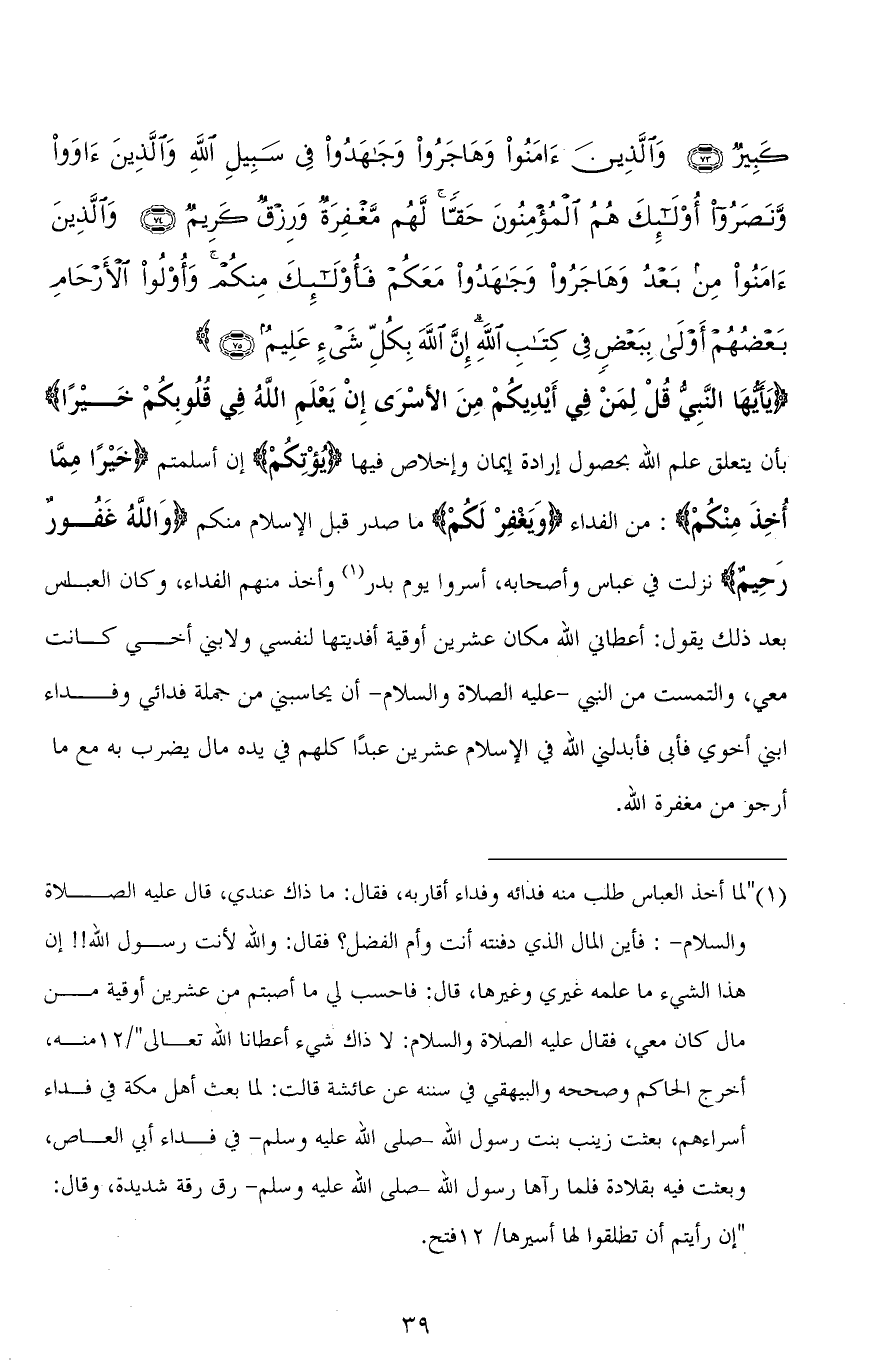 كَبِيرٌ ﴿٧٣﴾ وَٱلَّذِينَ ءَامَنُوا۟ وَهَاجَرُوا۟ وَجَٰهَدُوا۟ فِى سَبِيلِ ٱللَّهِ وَٱلَّذِينَ ءَاوَوا۟
وَّنَصَرُوٓا۟ أُو۟لَٰٓئِكَ هُمُ ٱلْمُؤْمِنُونَ حَقًّا ۚ لَّهُم مَّغْفِرَةٌ وَرِزْقٌ كَرِيمٌ ﴿٧٤﴾ وَٱلَّذِينَ
ءَامَنُوا۟ مِنۢ بَعْدُ وَهَاجَرُوا۟ وَجَٰهَدُوا۟ مَعَكُمْ فَأُو۟لَٰٓئِكَ مِنكُمْ ۚ وَأُو۟لُوا۟ ٱلْأَرْحَامِ
بَعْضُهُمْ أَوْلَىٰ بِبَعْضٍ فِى كِتَٰبِ ٱللَّهِ ۗ إِنَّ ٱللَّهَ بِكُلِّ شَىْءٍ عَلِيمٌۢ ﴿٧٥﴾ ﴾
﴿يَأَيُّهَا النَّبِيُّ قُلْ لِمَنْ فِي أَيْدِيكُمْ مِنَ الأسْرَى إِنْ يَعْلَمِ اللَّهُ فِي قُلُوبِكُمْ خَيْرًا﴾
بأن يتعلق علم الله بحصول إرادة إيمان وإخلاص فيها ﴿يُؤْتِكُمْ﴾ إن أسلمتم ﴿خَيْرًا مِمَّا
أُخِذَ مِنْكُمْ﴾ : من الفداء ﴿وَيَغْفِرْ لَكُمْ﴾ ما صدر قبل الإسلام منكم ﴿وَاللَّهُ غَفُورٌ
رَحِيمٌ﴾ نزلت في عباس وأصحابه، أسروا يوم بدر(١) وأخذ منهم الفداء، وكان العباس
بعد ذلك يقول: أعطاني الله مكان عشرين أوقية أفديتها لنفسي ولابني أخي كانت
معي، والتمست من النبي -عليه الصلاة والسلام- أن يحاسبني من جملة فدائي وفداء
ابني أخوي فأبى فأبدلني الله في الإسلام عشرين عبدًا كلهم في يده مال يضرب به مع ما
أرجو من مغفرة الله.
(١)"لما أخذ العباس طلب منه فدائه وفداء أقاربه، فقال: ما ذاك عندي، قال عليه الصلاة
والسلام- : فأين المال الذي دفنته أنت وأم الفضل؟ فقال: والله لأنت رسول الله!! إن
هذا الشيء ما علمه غيري وغيرها، قال: فاحسب لي ما أصبتم من عشرين أوقية من
مال كان معي، فقال عليه الصلاة والسلام: لا ذاك شيء أعطانا الله تعالى"/١٢منه،
أخرج الحاكم وصححه والبيهقي في سننه عن عائشة قالت: لما بعث أهل مكة في فداء
أسراءهم، بعثت زينب بنت رسول الله –صلى الله عليه وسلم- في فداء أبي العاص،
وبعثت فيه بقلادة فلما رآها رسول الله –صلى الله عليه وسلم- رق رقة شديدة، وقال:
"إن رأيتم أن تطلقوا لها أسيرها/ ١٢فتح.
٣٩